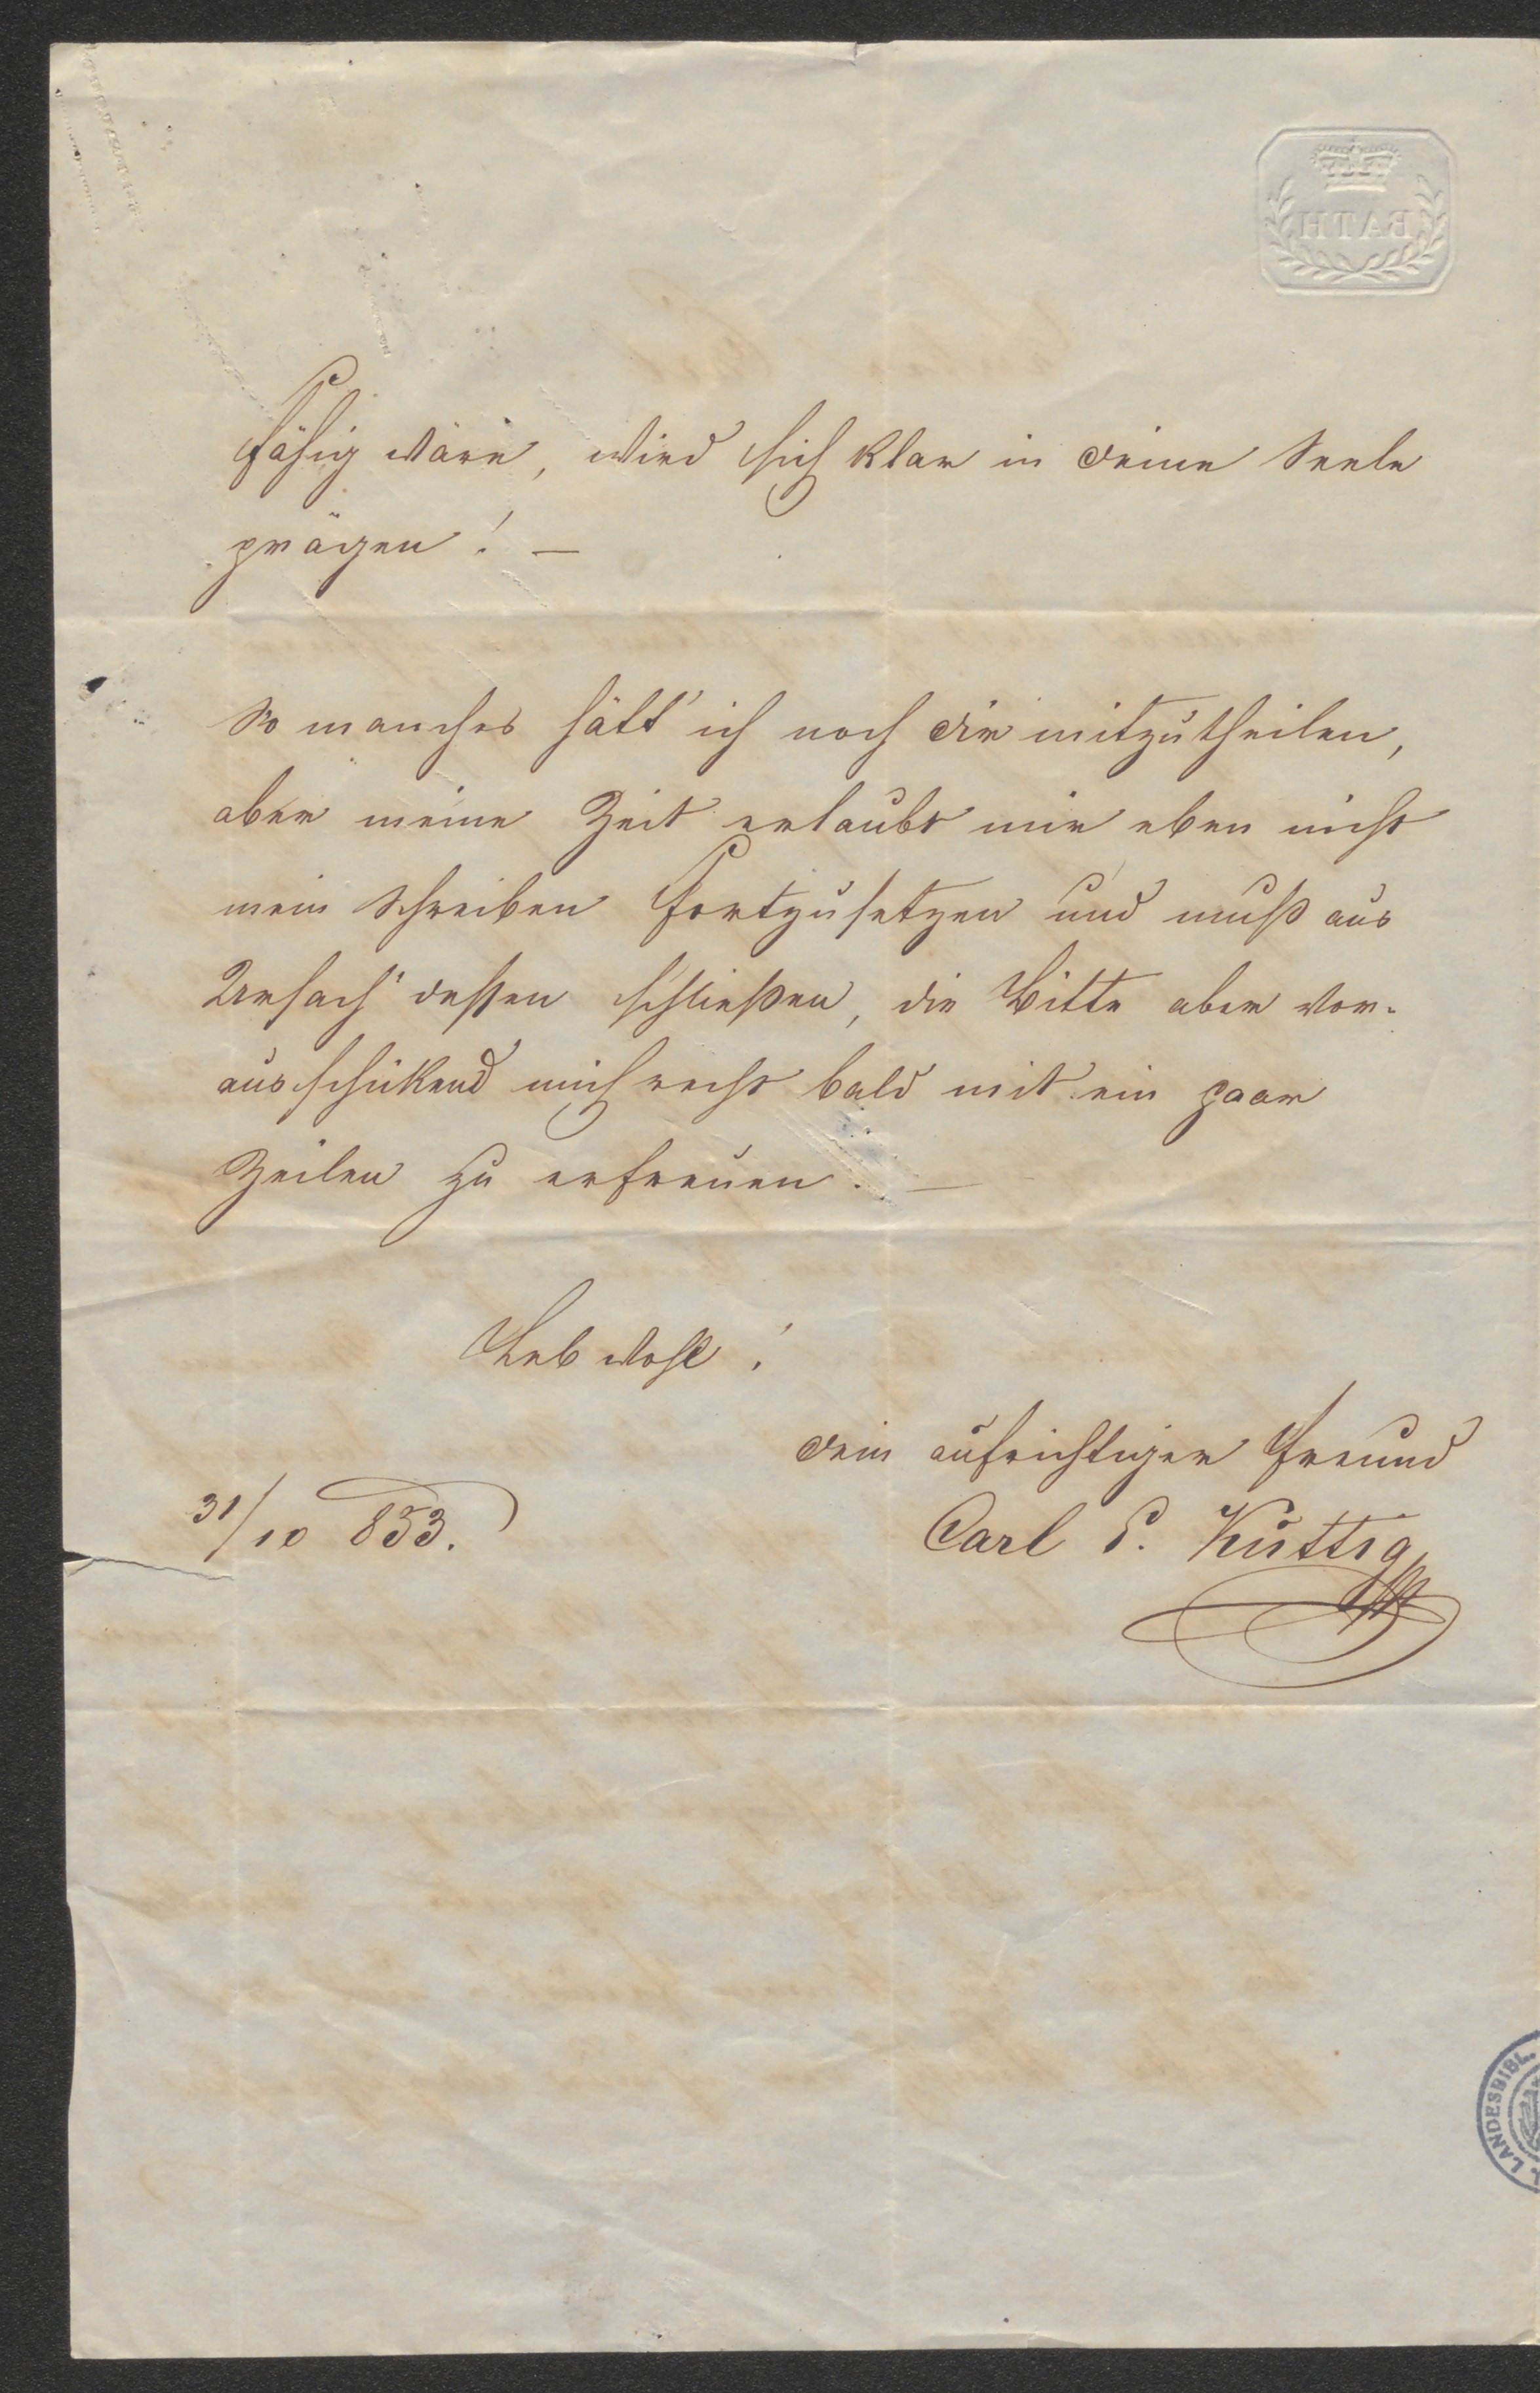 BATH
fähig wäre, wird sich klar in deine Seele
prägen! —
So manches hätt' ich noch dir mitzutheilen,
aber meine Zeit erlaubt mir eben nicht
mein Schreiben fortzusetzen und muß aus
Ursach' dessen schließen, die Bitte aber vor-
ausschikend mich recht bald mit ein paar
Zeilen zu erfreuen. —
Leb wohl!
dein aufrichtiger Freund
31/10 853.
Carl P. Kuttig
LANDESBIBL.